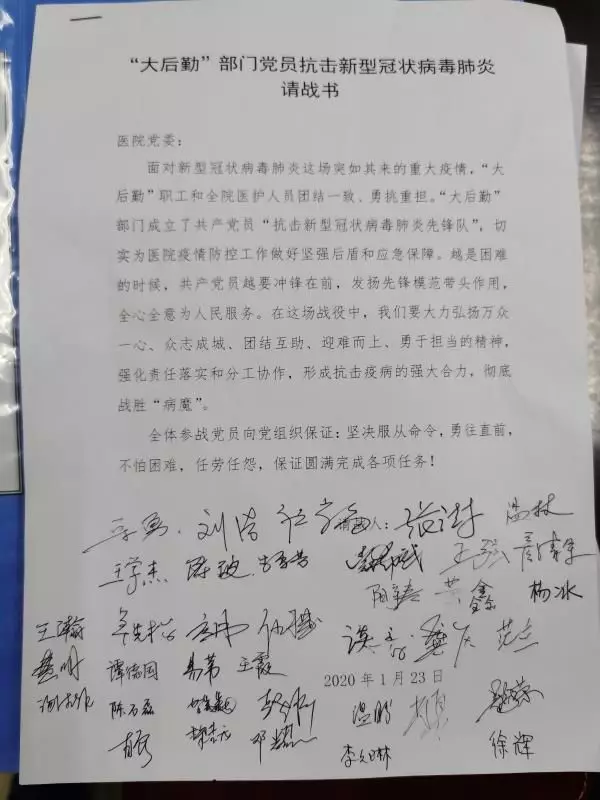 “大后勤”部门党员抗击新型冠状病毒肺炎
请战书
医院党委：
面对新型冠状病毒肺炎这场突如其来的重大疫情，“大
后勤”职工和全院医护人员团结一致、勇挑重担。“大后勤”
部门成立了共产党员“抗击新型冠状病毒肺炎先锋队”，切
实为医院疫情防控工作做好坚强后盾和应急保障。越是困难
的时候，共产党员越要冲锋在前，发扬先锋模范带头作用，
全心全意为人民服务。在这场战役中，我们要大力弘扬万众
一心、众志成城、团结互助、迎难而上、勇于担当的精神，
强化责任落实和分工协作，形成抗击疫病的强大合力，彻底
战胜“病魔”。
全体参战党员向党组织保证：坚决服从命令，勇往直前，
不怕困难，任劳任怨，保证圆满完成各项任务！
刘浩 请战人： 温林
王学杰 陈波 王强
鑫 杨冰
范志
黄明 谭德国 易芾 王霞
2020 年 1 月 23 日
陈石磊 温鹏
邓耀 徐辉